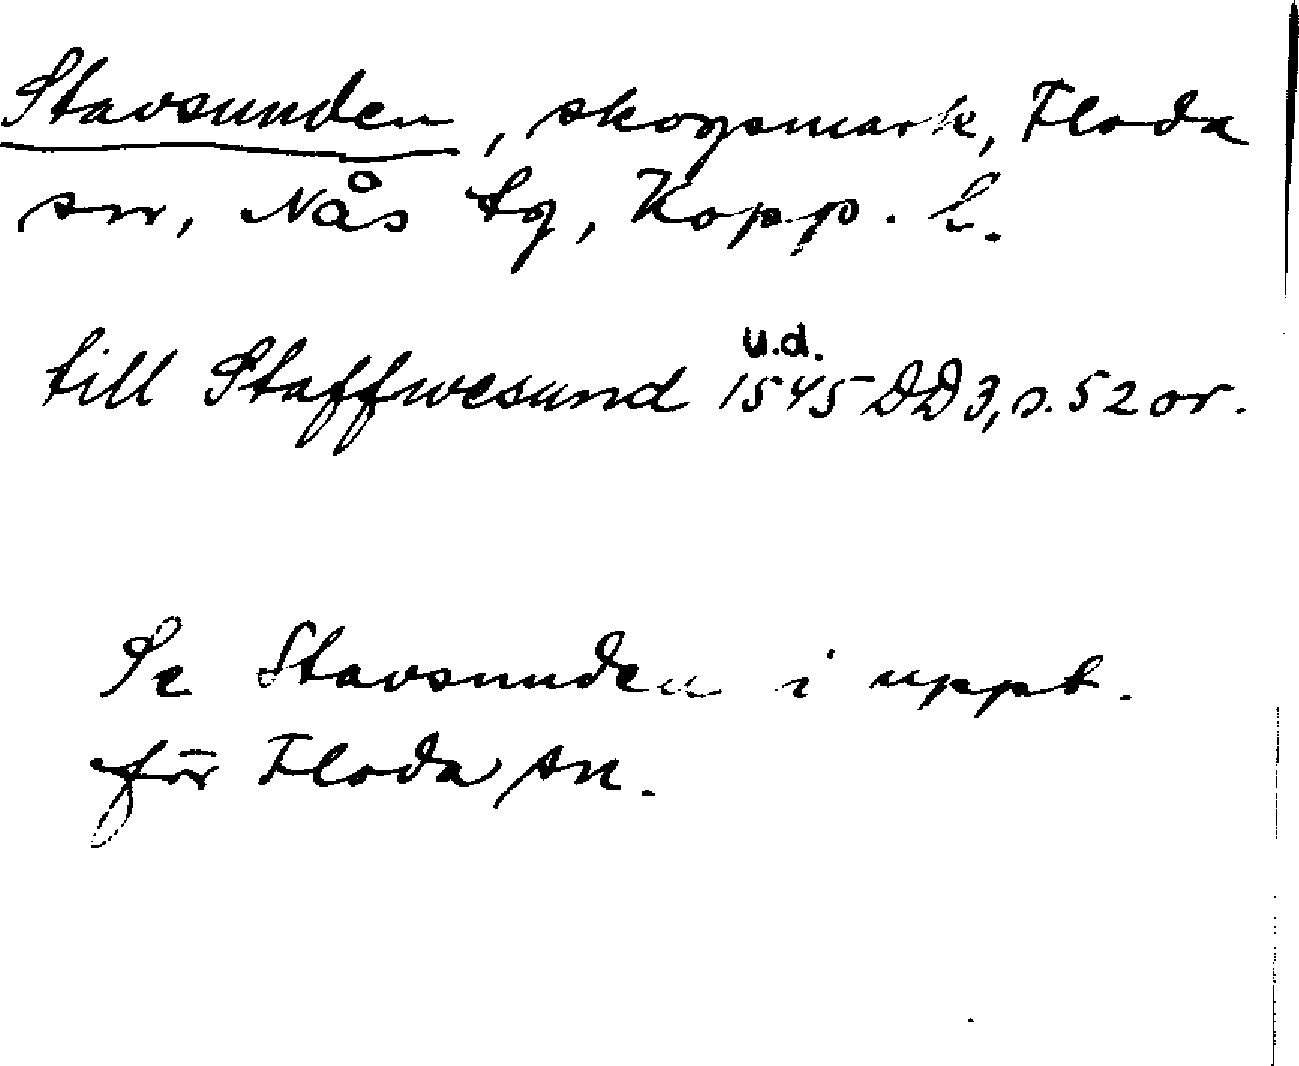 Stavsunden, skogsmark, Floda
sn, Nås tg, Kopp. l.
u.d.
till Staffwesund 1545 DD3, s. 52 or.
Se Stavsunden i uppt.
för Floda sn.